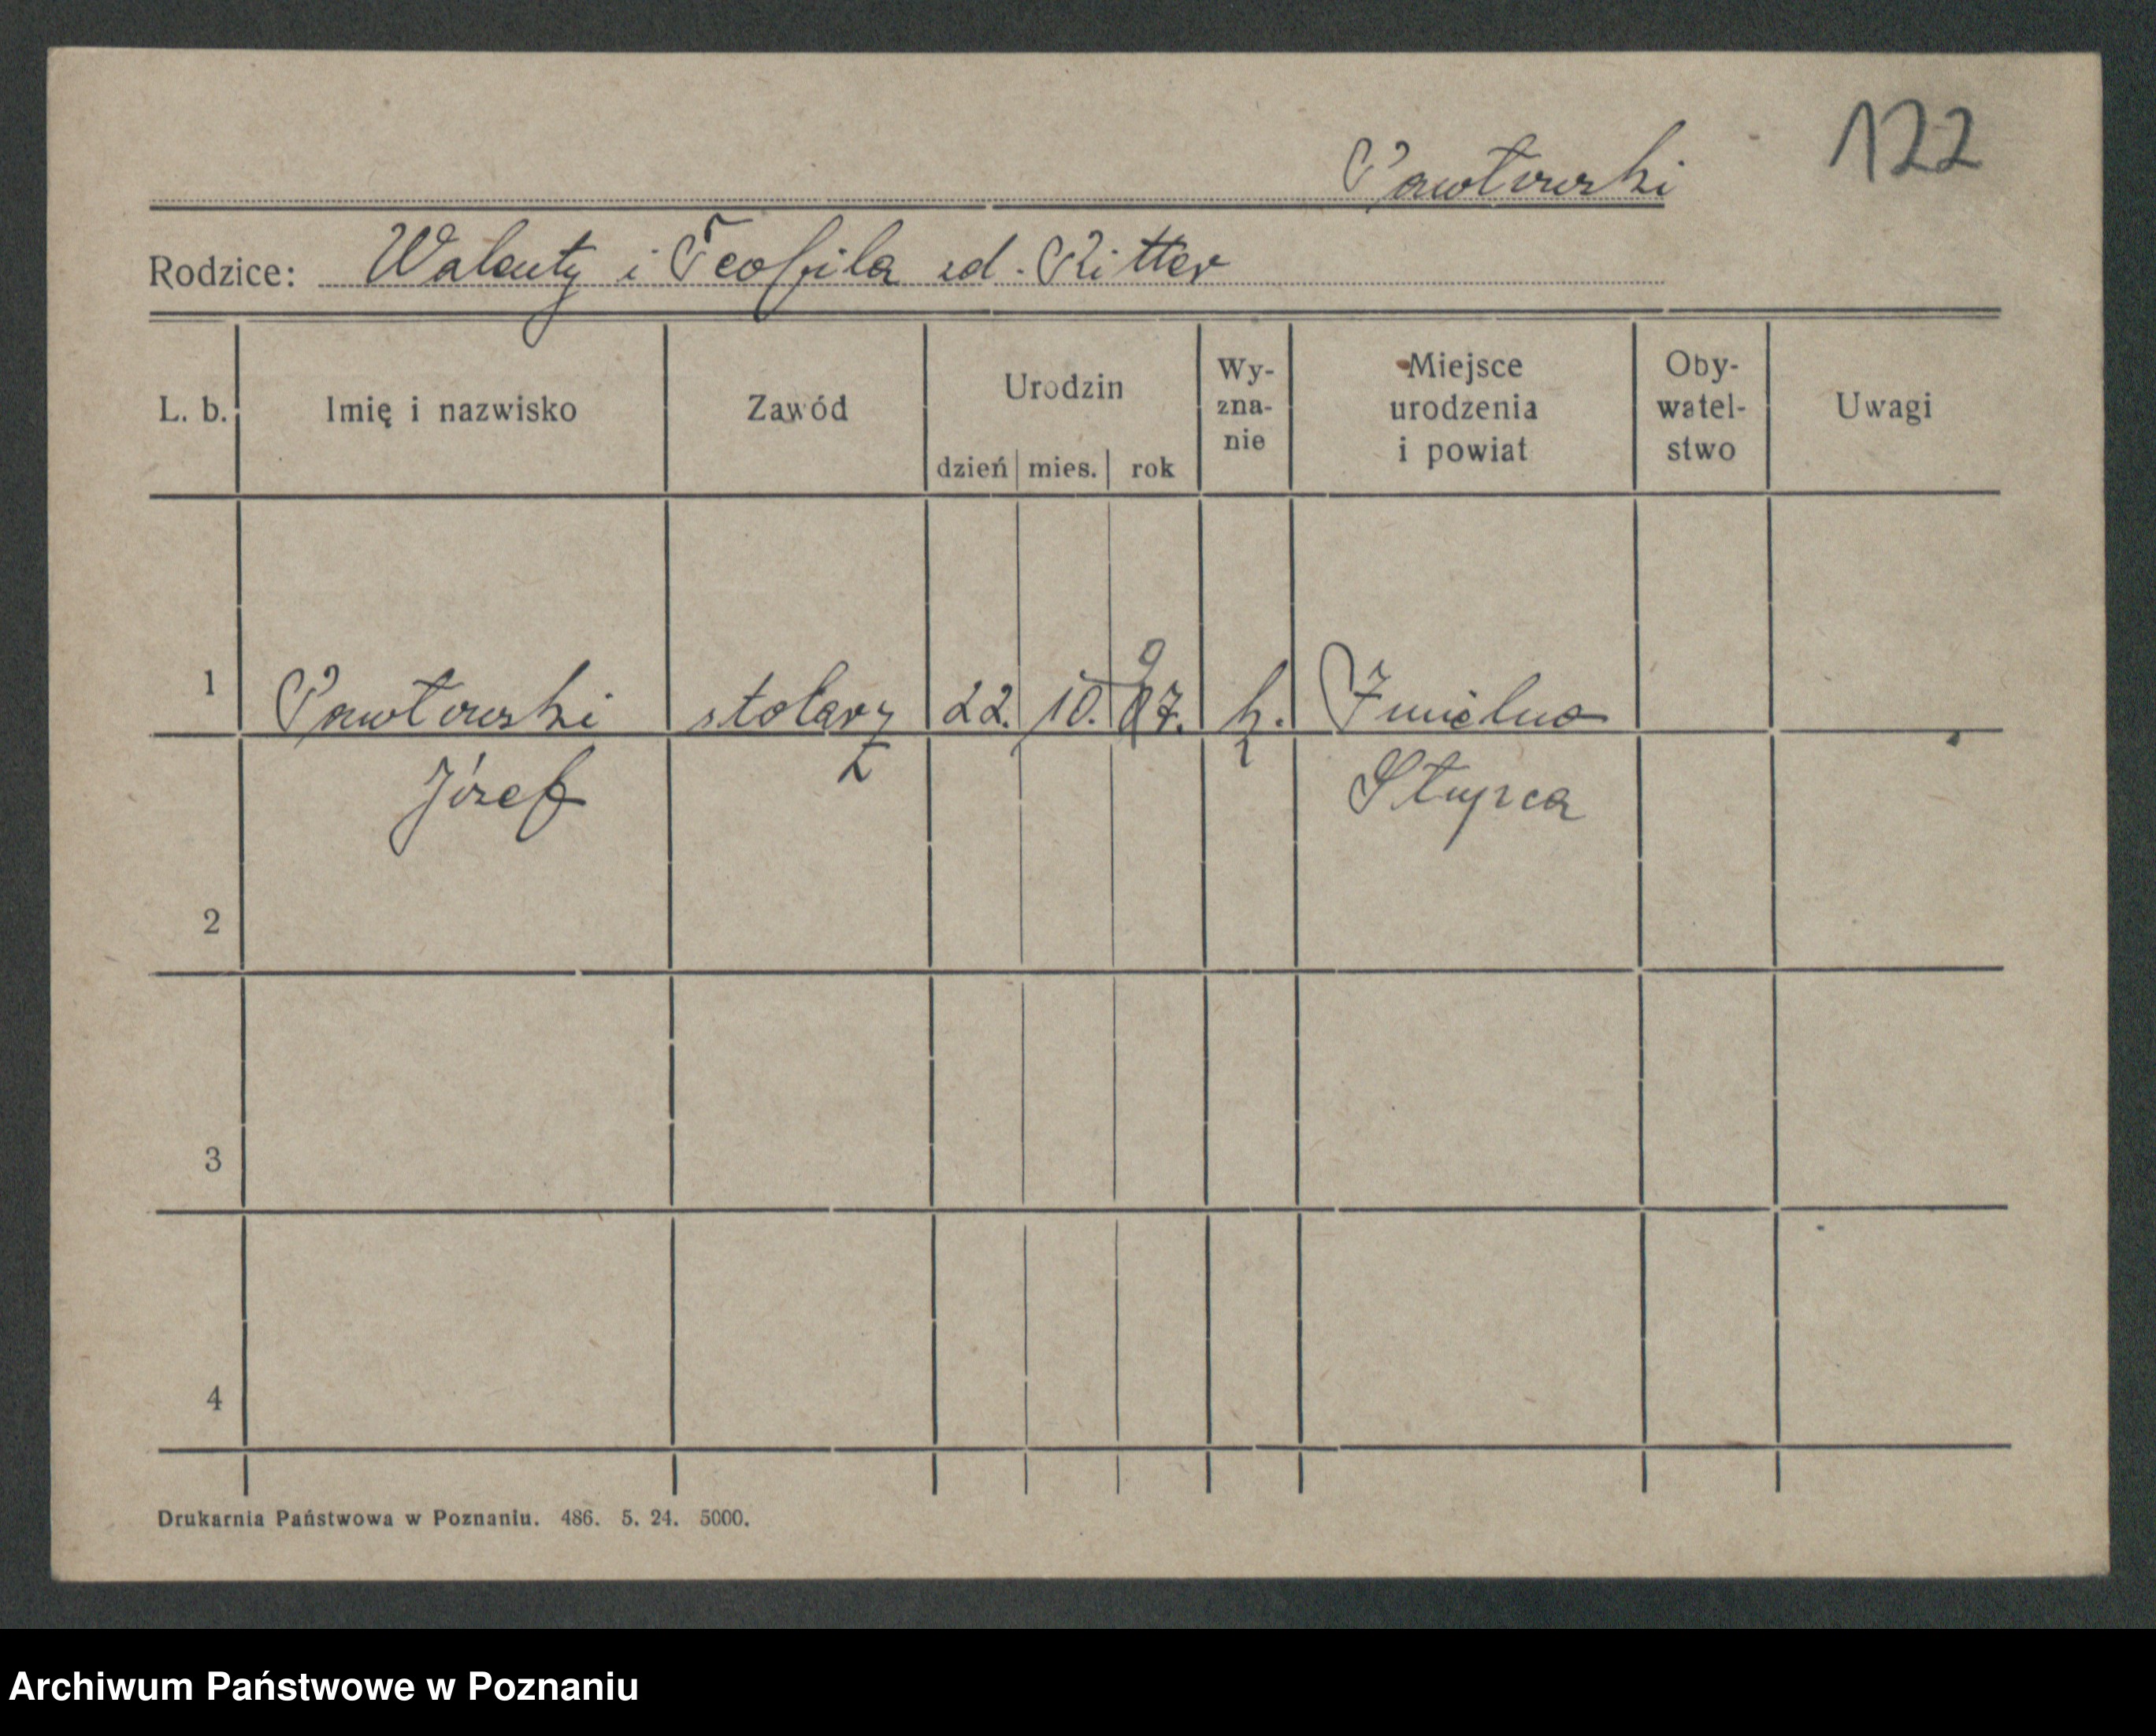 122
Pawłowski
Rodzice: Walenty i Teofila zd. Ritter
L. b. Imię i nazwisko Zawód Urodzin dzień mies. rok Wy-zna-nie Miejsce urodzenia i powiat Oby-watel-stwo Uwagi
1 Pawłowski stolarz 22. 10. 97. k.
Józef Słupca
2
3
4
Drukarnia Państwowa w Poznaniu. 486. 5. 24. 5000.
Archiwum Państwowe w Poznaniu